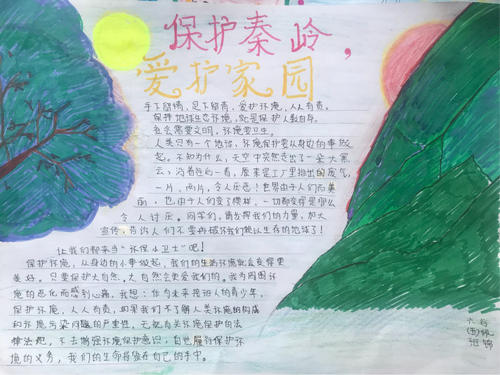 保护秦岭，
爱护家园
手下留情，足下留青，爱护环境，人人有责。
保护地球生态环境，就是保护人类自身。
社会需要文明，环境需要卫生。
人类只有一个地球，环境保护要从身边的事做
起。不知为什么，天空中突然走出了一朵大黑
云，沿着近的一看，原来是工厂里排出的废气，
一片，两片，令人厌恶！世界由于人们而美
丽，也由于人们变了模样，一切都变得是那么
令人讨厌。同学们，请发挥我们的力量，加大
宣传，告诉人们不要再破坏我们赖以生存的地球了！
让我们都来当“环保小卫士”吧！
保护环境，从身边的小事做起，我们的生活环境就会变得更
美好。只要保护大自然，大自然会更爱我们的。我为周围环
境的恶化而感到心痛，我想：作为未来接班人的青少年，
保护环境，人人有责，如果我们不了解人类环境的构成
和环境污染问题的严重性，无视有关环境保护的法
律法规，不去增强环境保护意识，自觉履行保护环
境的义务，我们的生命将毁在自己的手中。